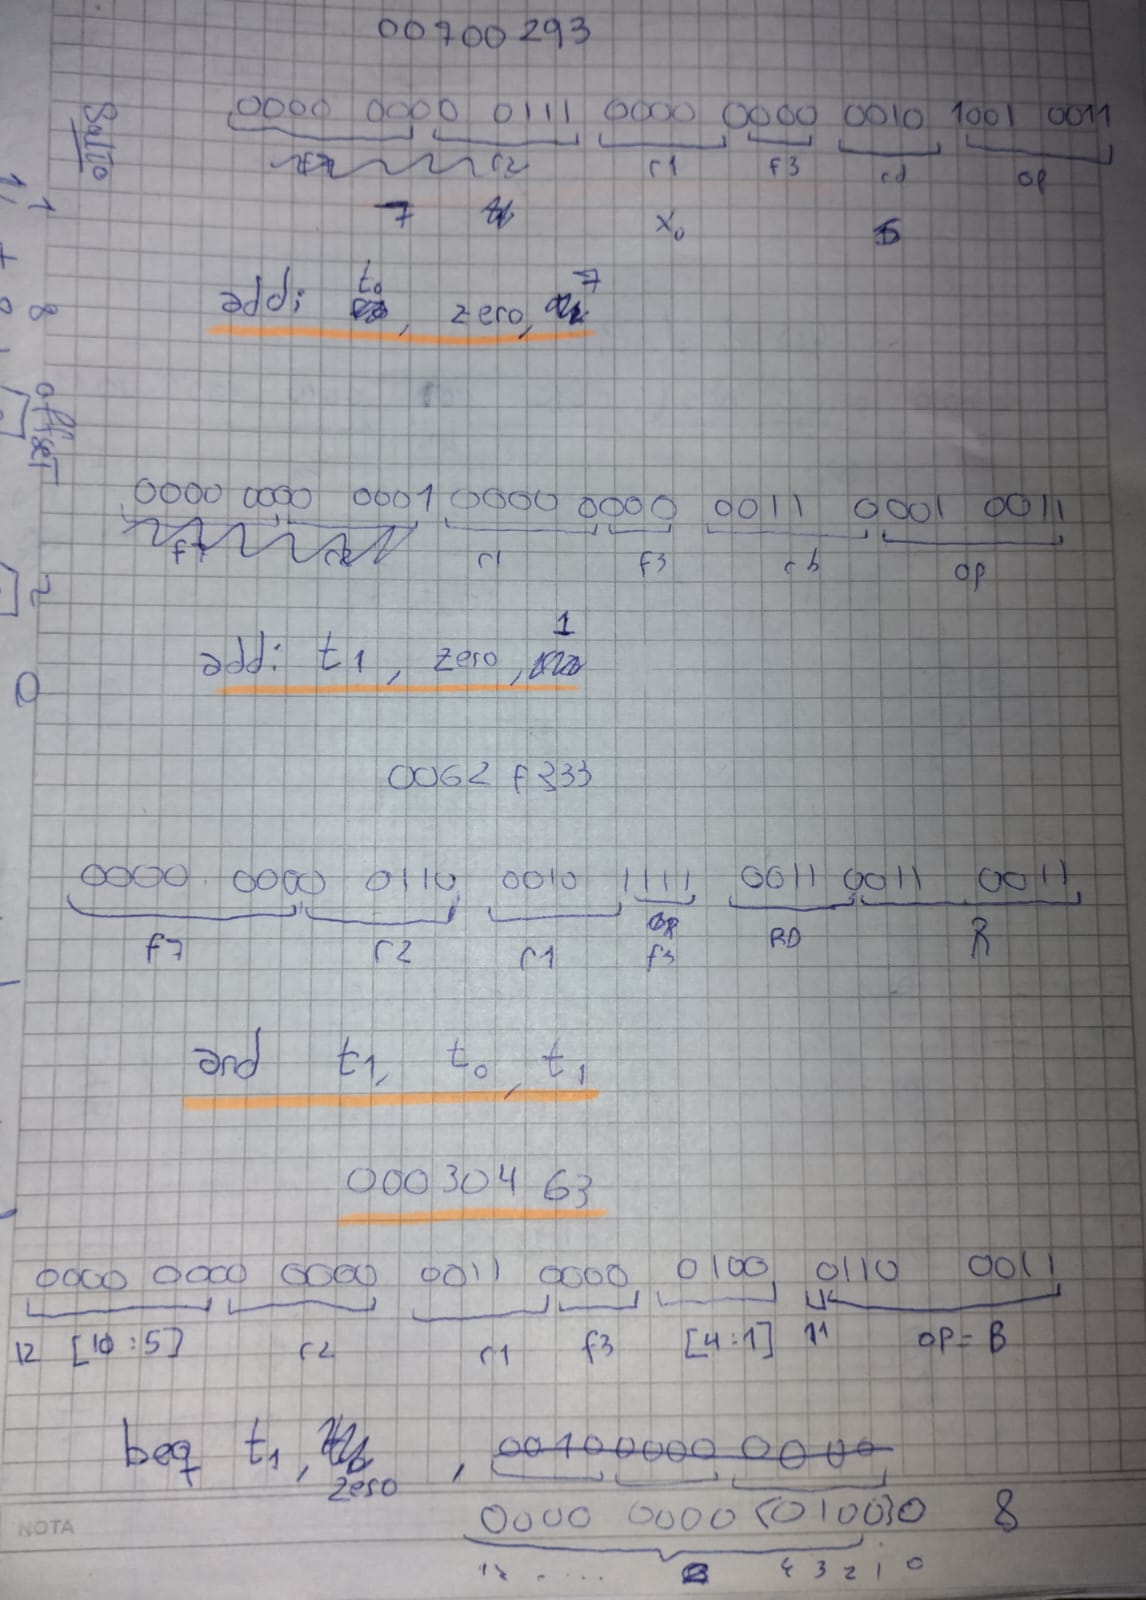 00700293
0000 0000 0111 0000 0000 0010 1001 0011
f7 r2 r1 f3 rd op
7 x0 5
t0 7
addi , zero,
0000 0000 0001 0000 0000 0011 0001 0011
f7 r2 r1 f3 rd op
1
addi t1, zero,
0062 f333
0000 0000 0110 0010 1111 0011 0011 0011
f7 r2 r1 f3 RD R
and t1, t0, t1
000304 63
0000 0000 0000 0011 0000 0100 0110 0011
12 [10:5] r2 r1 f3 [4:1] 11 op=B
beq t1, , 0010 0000 0000
zero
0000 0000 (0100)0 8
12 .... 4 3 2 1 0
NOTA
Salto
offset